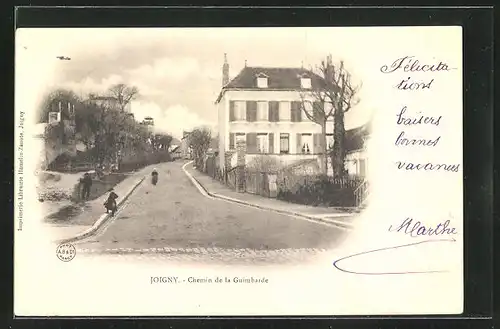 Félicita-
tions
baisers
bonnes
vacances
Marthe
JOIGNY. - Chemin de la Guimbarde
Imprimerie Librairie Hamelin-Zanote, Joigny